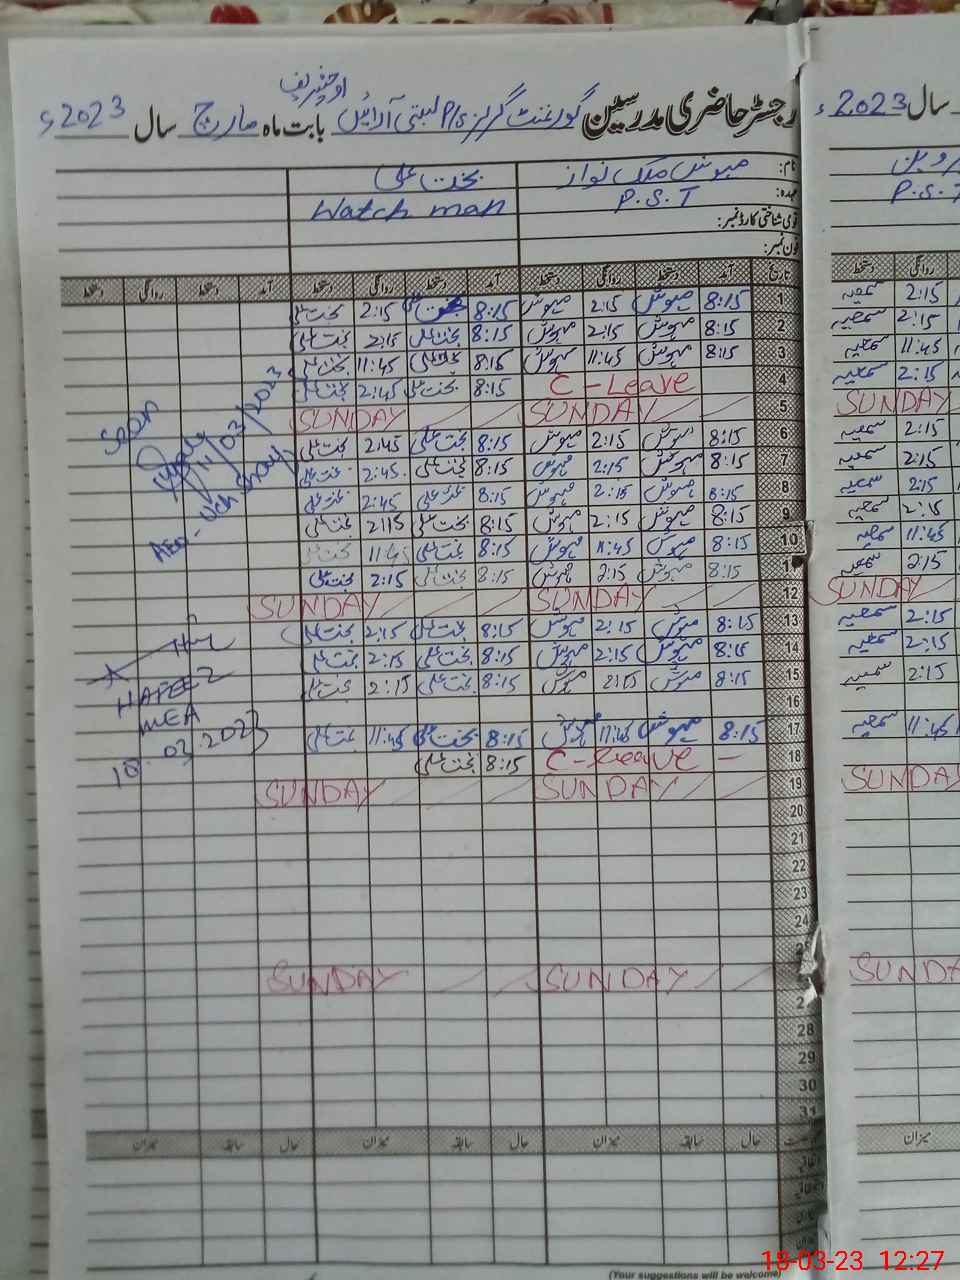 اوچشریف
رجسٹر حاضری مدرسین گورنمنٹ گرلز P/S بستی آرائیں بابت ماہ مارچ سال 2023ء
سال 2023ء
نام: مہوش ملک نواز بخت علی
عہدہ: P.S.T Watch man
P.S.T
قومی شناختی کارڈ نمبر:
فون نمبر:
تاریخ آمد دستخط روانگی دستخط آمد دستخط روانگی دستخط آمد دستخط روانگی دستخط
روانگی دستخط
1 8:15 مہوش 2:15 مہوش 8:15 بخت علی 2:15 بخت علی
2:15 سمعیہ
2 8:15 مہوش 2:15 مہوش 8:15 بخت علی 2:15 بخت علی
2:15 سمعیہ
3 8:15 مہوش 11:45 مہوش 8:15 بخت علی 11:45 بخت علی
11:45 سمعیہ
4 C-Leave 8:15 بخت علی 2:45 بخت علی
2:15 سمعیہ
5 SUNDAY SUNDAY
SUNDAY
6 8:15 مہوش 2:15 مہوش 8:15 بخت علی 2:45 بخت علی
2:15 سمعیہ
7 8:15 مہوش 2:15 مہوش 8:15 بخت علی 2:45 بخت علی
2:15 سمعیہ
8 8:15 مہوش 2:15 مہوش 8:15 بخت علی 2:45 بخت علی
2:15 سمعیہ
9 8:15 مہوش 2:15 مہوش 8:15 بخت علی 2:15 بخت علی
2:15 سمعیہ
10 8:15 مہوش 11:45 مہوش 8:15 بخت علی 11:45 بخت علی
11:45 سمعیہ
11 8:15 مہوش 2:15 مہوش 8:15 بخت علی 2:15 بخت علی
2:15 سمعیہ
12 SUNDAY SUNDAY
SUNDAY
13 8:15 مہوش 2:15 مہوش 8:15 بخت علی 2:15 بخت علی
2:15 سمعیہ
14 8:15 مہوش 2:15 مہوش 8:15 بخت علی 2:15 بخت علی
2:15 سمعیہ
15 8:15 مہوش 2:15 مہوش 8:15 بخت علی 2:15 بخت علی
2:15 سمعیہ
16
17 8:15 مہوش 11:45 مہوش 8:15 بخت علی 11:45 بخت علی
11:45 سمعیہ
18 C-Leave 8:15 بخت علی
19 SUNDAY SUNDAY
SUNDAY
20
21
22
23
24
SUNDAY SUNDAY
SUNDAY
28
29
30
31
Seen
11/03/2023
HAFEEZ
MEA
18.03.2023
حال سابقہ میزان حال سابقہ میزان حال سابقہ میزان
میزان
(Your suggestions will be welcome)
18-03-23 12:27